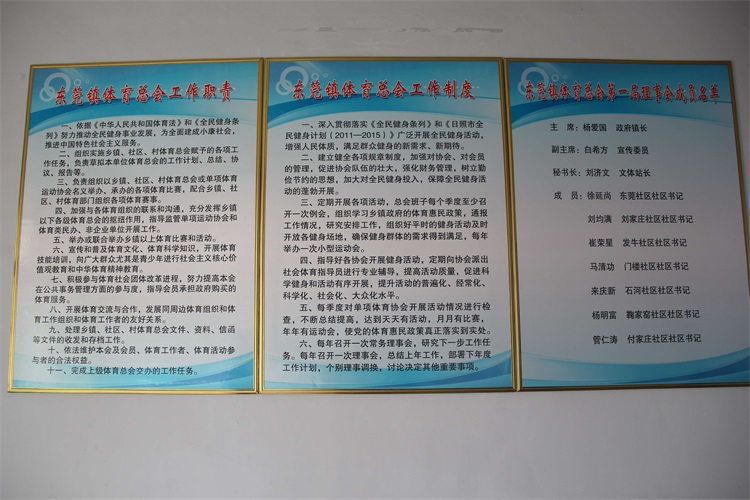 东莞镇体育总会工作职责
一、依据《中华人民共和国体育法》和《全民健身条
列》努力推动全民健身事业发展，为全面建成小康社会，
推进中国特色社会主义服务。
二、组织实施乡镇、社区、村体育总会赋予的各项工
作任务，负责草拟本单位体育总会的工作计划、总结、协
议、报告等。
三、负责组织以乡镇、社区、村体育总会或单项体育
运动协会名义举办、承办的各项体育比赛，配合乡镇、社
区、村体育部门组织各项体育赛事。
四、加强与各体育组织的联系和沟通，充分发挥乡镇
以下各级体育总会的枢纽作用，指导监管单项运动协会和
体育类民办、非企业单位开展工作。
五、举办或联合举办乡镇以上体育比赛和活动。
六、宣传和普及体育文化、体育科学知识，开展体育
技能培训，向广大群众尤其是青少年进行社会主义核心价
值观教育和中华体育精神教育。
七、积极参与体育社会团体改革进程，努力提高本会
在公共事务管理方面的参与度，指导会员承担政府购买的
体育服务。
八、开展体育交流与合作，发展同周边体育组织和体
育工作组织和体育工作者的友好关系。
九、处理乡镇、社区、村体育总会文件、资料、信函
等文件的收发和存档工作。
十、依法维护本会及会员、体育工作者、体育活动参
与者的合法权益。
十一、完成上级体育总会交办的工作任务。
东莞镇体育总会工作制度
一、深入贯彻落实《全民健身条列》和《日照市全
民健身计划（2011—2015）》广泛开展全民健身活动，
增强人民体质，满足群众健身的新需求、新期待。
二、建立健全各项规章制度，加强对协会、对会员
的管理，促进协会队伍的壮大，强化财务管理，树立勤
俭节约的思想，加大对全民健身投入，保障全民健身活
动的蓬勃开展。
三、定期开展各项活动，总会班子每个季度至少召
开一次例会，组织学习乡镇政府的体育惠民政策，通报
工作情况，研究安排工作，组织好平时的健身活动及时
开放各健身场地，确保健身群体的需求得到满足，每年
举办一次小型运动会。
四、指导好各协会开展健身活动，定期向协会派出
社会体育指导员进行专业辅导，提高活动质量，促进科
学健身和活动有序开展，提升活动的普遍化、经常化、
科学化、社会化、大众化水平。
五、每季度对单项体育协会开展活动情况进行检
查，不断总结提高，达到天天有活动，月月有比赛，
年年有运动会，使党的体育惠民政策真正落实到实处。
六、每年召开一次常务理事会，研究下一步工作任
务。每年召开一次理事会，总结上年工作，部署下年度
工作计划，个别理事调换，讨论决定其他重要事项。
东莞镇体育总会第一届理事会成员名单
主 席：杨爱国 政府镇长
副主席：白希方 宣传委员
秘书长：刘济文 文体站长
成 员：徐延尚 东莞社区社区书记
刘均满 刘家庄社区社区书记
崔荣星 发牛社区社区书记
马清功 门楼社区社区书记
来庆新 石河社区社区书记
杨明富 鞠家窑社区社区书记
管仁涛 付家庄社区社区书记